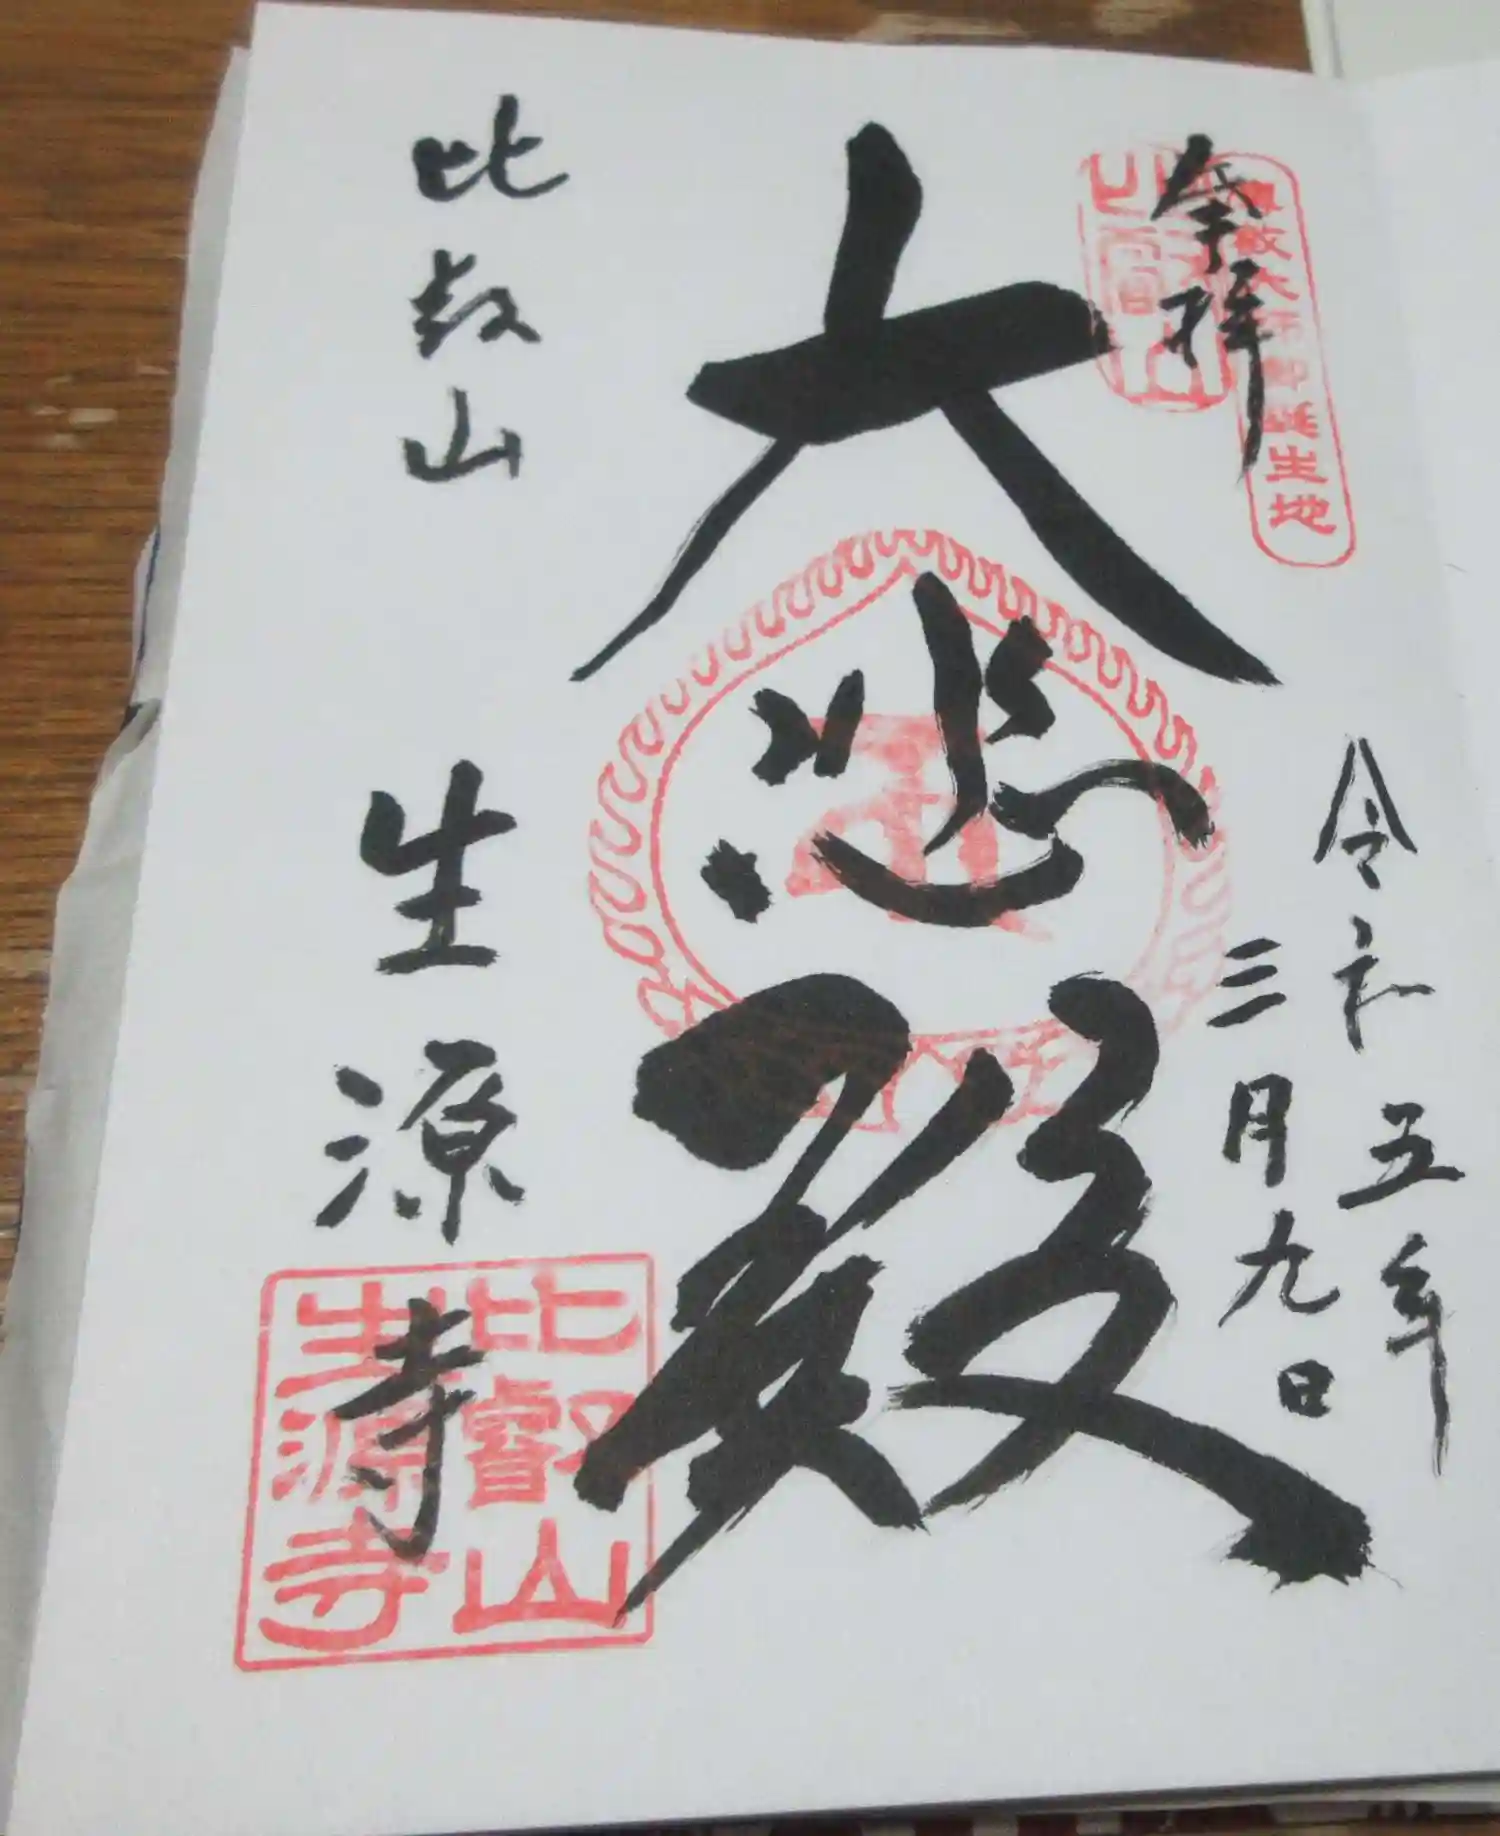 奉拝
傳教大師御誕生地
令和五年
三月九日
大悲殿
比叡山
生源寺
比叡山
生源寺